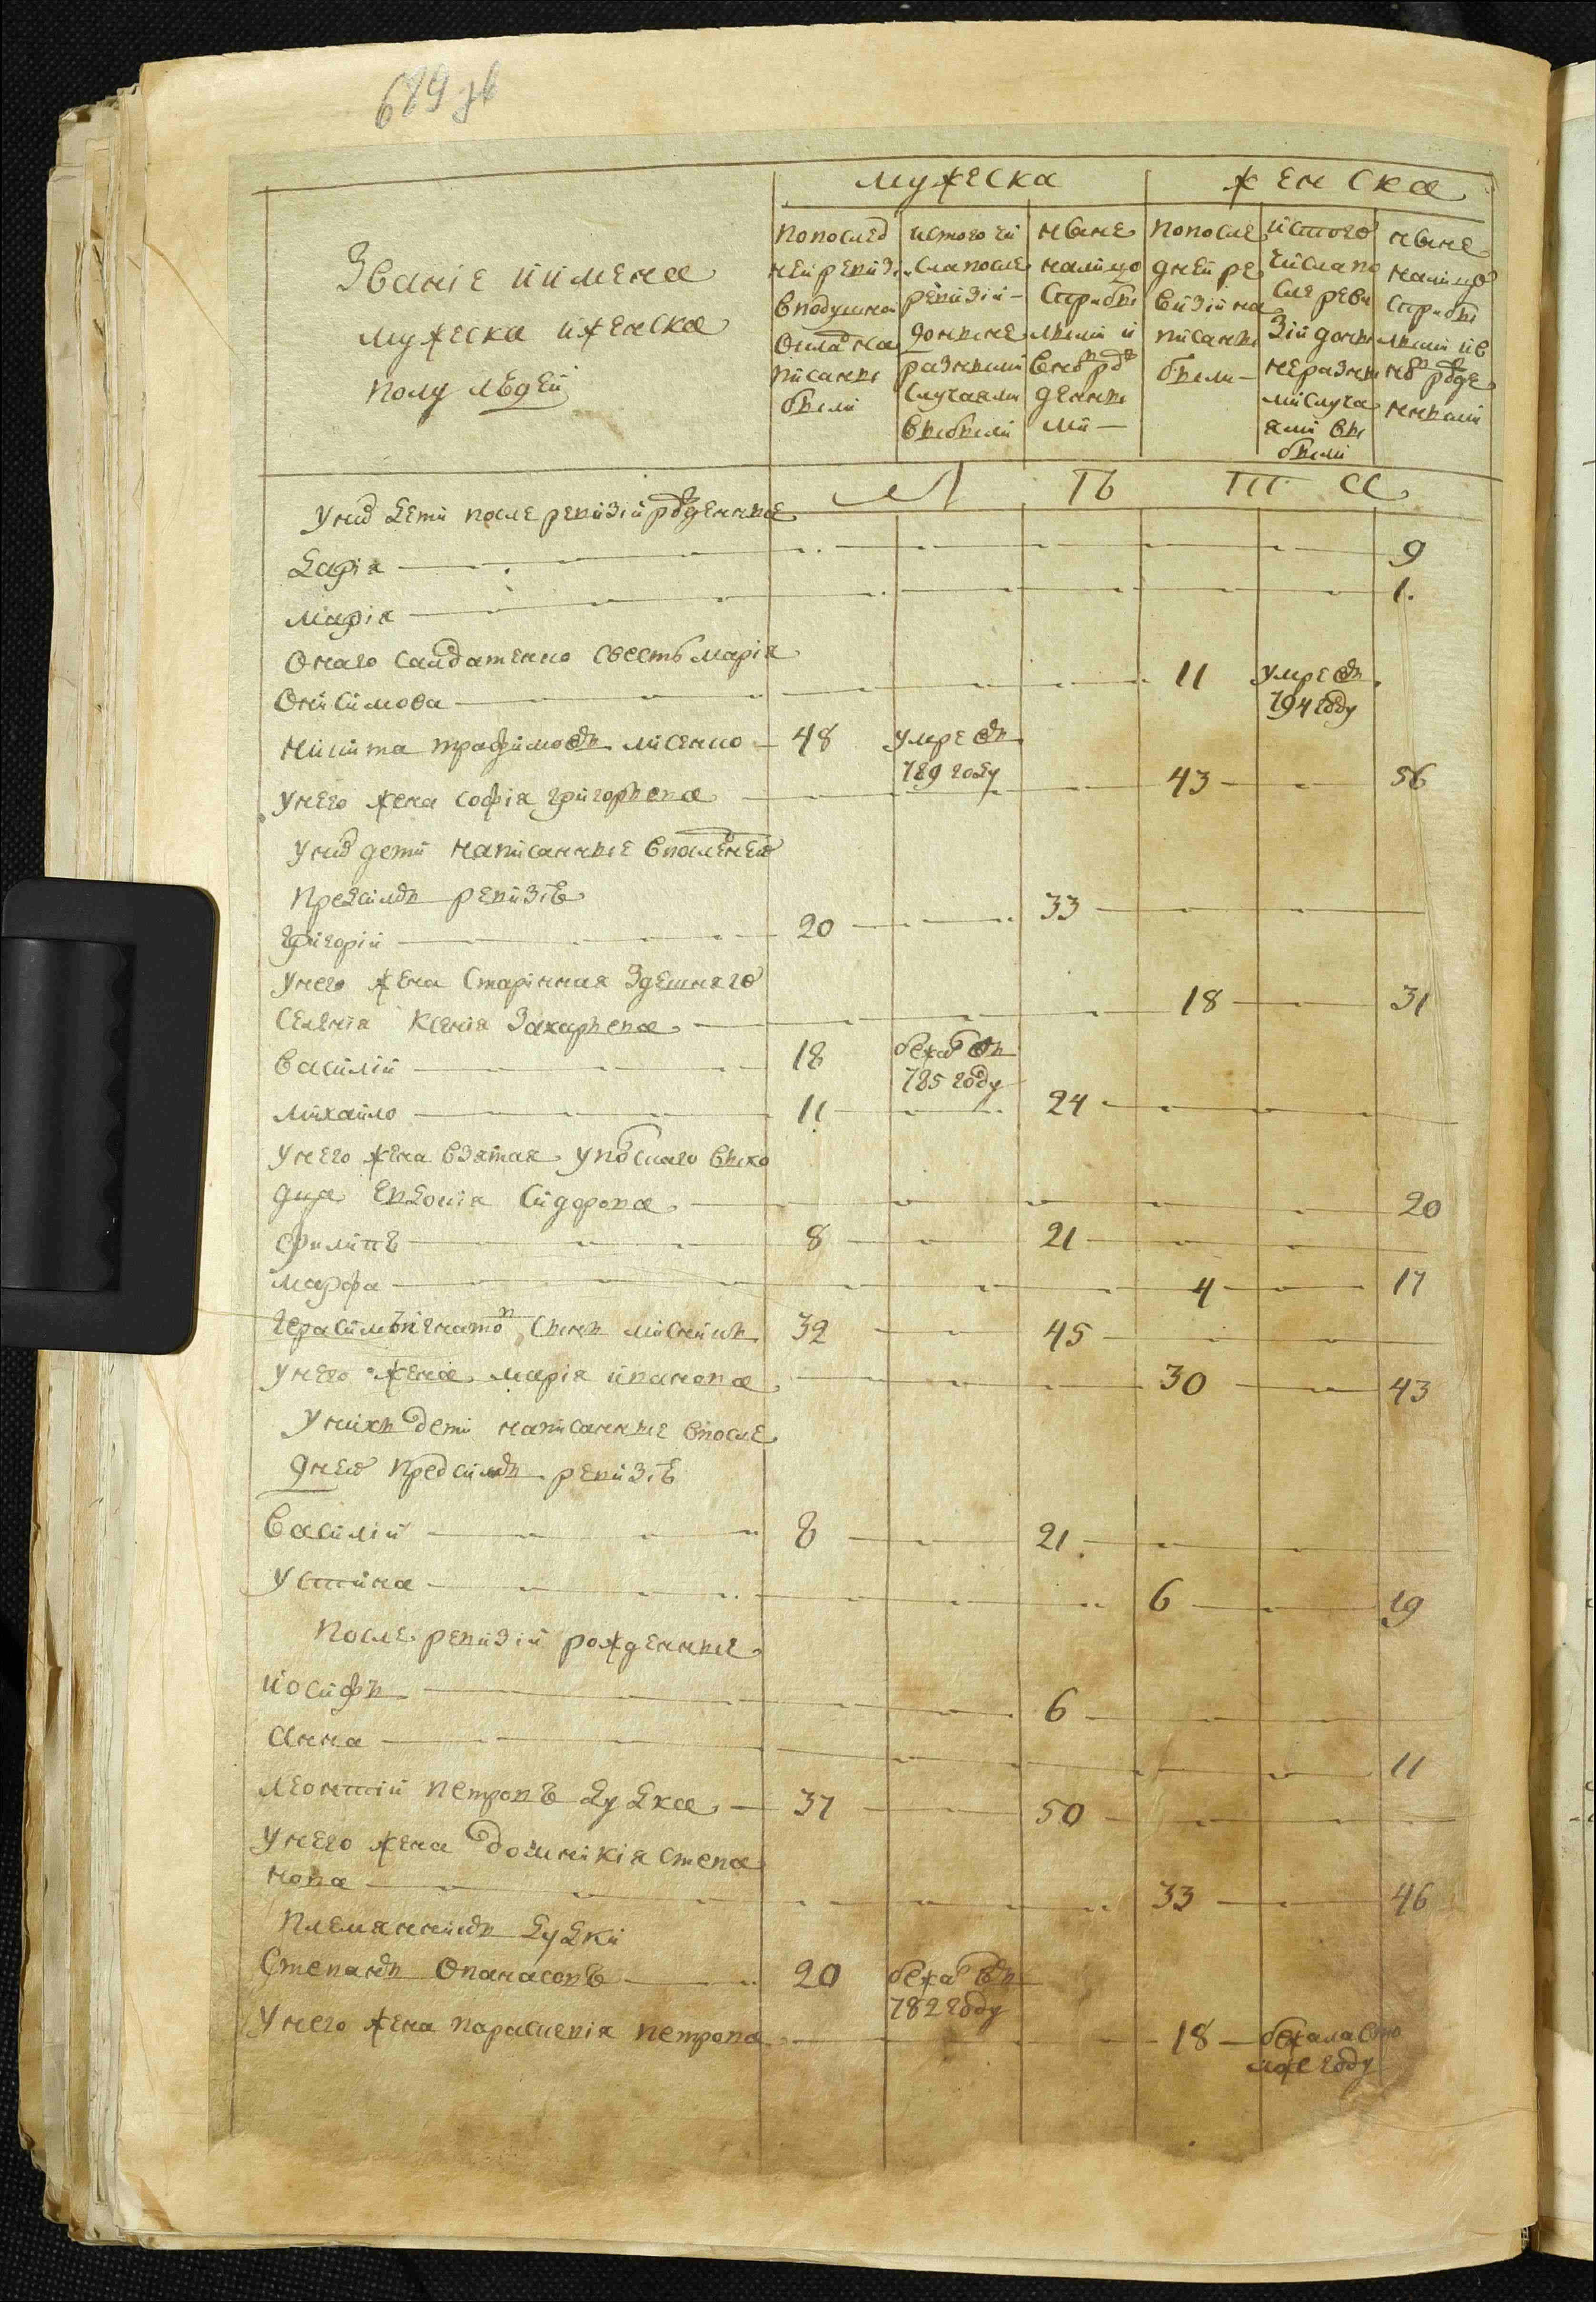 689 зв
мужеска женска
Званіе и имена
мужеска и женска
полу людей
по послед
ней ревиз.
в подушной
оклад на
писаны
были
ис того чи
сла после
ревизiи
до ныне
разными
случаями
выбыли
ныне
на лицо
с прибы
лыми и
вновь рож
денны
ми
по после
дней ре
визiи на
писаны
были
ис того
числа по
сле реви
зiи до ны
не разны
ми случа
ями вы
были
ныне
на лицо
с прибы
лыми и в
новь рожде
нными
Л Ѣ Т А
У них дети после ревизiи рожденные
Дарiя 9
Марiя 1.
Онаго Сайдатенко свесть Марiя
Онисимова 11 умре въ 794 году
Никита Трафимовъ Лисенко 48 умре въ 789 году
У него жена Софiя Григорьева 43 56
У них дети написанные в последней
пред симъ ревизiѣ
Григорiй 20 33
У него жена старинная здешняго
селенiя Ксенiя Захарьева 18 31
Василiй 18 бежал въ 785 году
Михайло 11 24
У него жена взятая у польскаго выхо
дца Евдокiя Сидорова 20
Филипъ 8 21
Марфа 4 17
Герасимъ Игнатов сынъ 32 45
У него жена Марiя Иванова 30 43
У нихъ дети написанные в после
дней пред симъ ревизiѣ
Василiй 8 21
Устина 6 19
После ревизiи рожденные
Иосифъ 6
Анна 11
Леонтiй Петровъ Дудка 37 50
У него жена Домникiя Степа
нова 33 46
Племянникъ Дудки
Степанъ Опанасовъ 20 бежал въ 782 году
У него жена Парасковiя Петрова 18 бежала в то
мже году